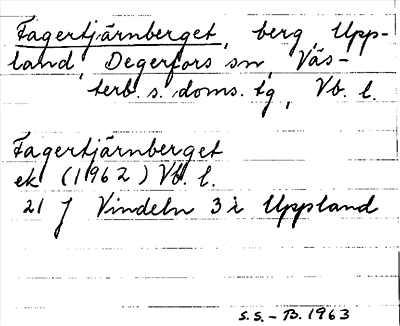 Fagertjärnberget, berg, Upp-
land, Degerfors sn, Väs-
terb. s. doms. tg, Vb. l.
Fagertjärnberget
ek (1962) Vb. l.
21 J Vindeln 3 i Uppland
S.S. - B. 1963